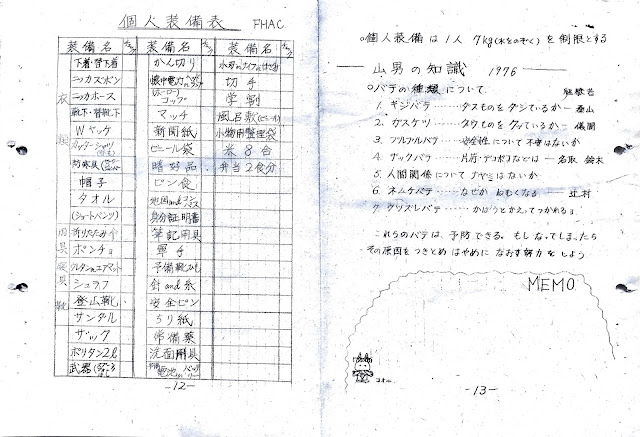 個人装備表 FHAC
装備名 装備名 装備名
下着・替下着 かん切り
ニッカズボン 切手
ニッカホース コップ 学割
靴下・替靴下 マッチ 風呂敷(ビニール)
Wヤッケ 新聞紙 小物用整理袋
ビニール袋 米8合
嗜好品 弁当2食分
帽子 ピン食
タオル
(ショートパンツ) 身分証明書
折りたたみ傘 筆記用具
ポンチョ 軍手
予備靴ひも
シュラフ 針and糸
登山靴 安全ピン
サンダル ちり紙
ザック 常備薬
ポリタン2ℓ 洗面用具
武器
衣類
雨具
寝具
靴
-12-
○個人装備は1人 7kg(水をのぞく)を制限とする
山男の知識 1976
○バテの種類について 経験者
1. キジバテ……タスものをダシているか―
2. ガスケツ……タウものをクッているか― 儀間
3. フルフルバテ……安全性について不安はないか
4. ザックバテ……片荷・デコボコなどは― 名取 鈴木
5. 人間関係についてナヤミはないか
6. ネムケバテ……なぜかねむくなる― 辻村
7. クツズレバテ……かばうとかえってつかれるョ
これらのバテは、予防できる。もしなってしまったら
その原因をつきとめ はやめに なおす努力をしよう
MEMO
-13-